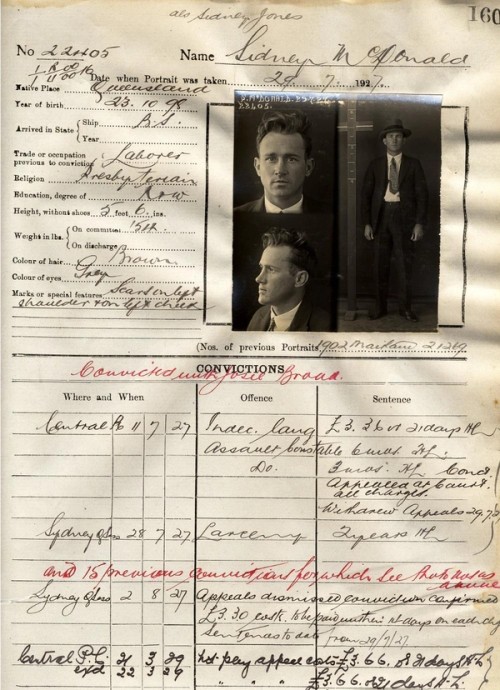 als Sidney Jones
160
No 22405 Name Sidney McDonald
Date when Portrait was taken 29.7.1927
Native Place Queensland
Year of birth 23.10.98
Arrived in State { Ship B.S.
Year
Trade or occupation previous to conviction } Laborer
Religion Presbyterian
Education, degree of R & W
Height, without shoes 5 feet 6 ins.
Weight in lbs. { On committal
On discharge
Colour of hair Brown
Colour of eyes Grey
Marks or special features Scars on left
shoulder & on left cheek
22405.
(Nos. of previous Portraits 1902 Maitland
CONVICTIONS
Convicted with Josie
Where and When Offence Sentence
Central 11 7 27 Indec. lang £3.3 or 21 days HL
Assault Constable 6 mos. HL
Do. 3 mos. HL Conc
Appealed at Court
all charges.
Withdrew Appeals 29.7.27
Sydney Q Sess 28 7 27 Larceny 2 years HL
and 15 previous convictions for which see Photo No as
above
Sydney Q Sess 2 8 27 Appeals dismissed conviction confirmed
£3.30 costs to be paid within days on each
Sentences to date from 29/7/27
Central P.C. 21 3 29 not pay appeal costs £3.6.6. or 21 days H.L.
22 3 29 " " " £3.6.6. or 21 days H.L.